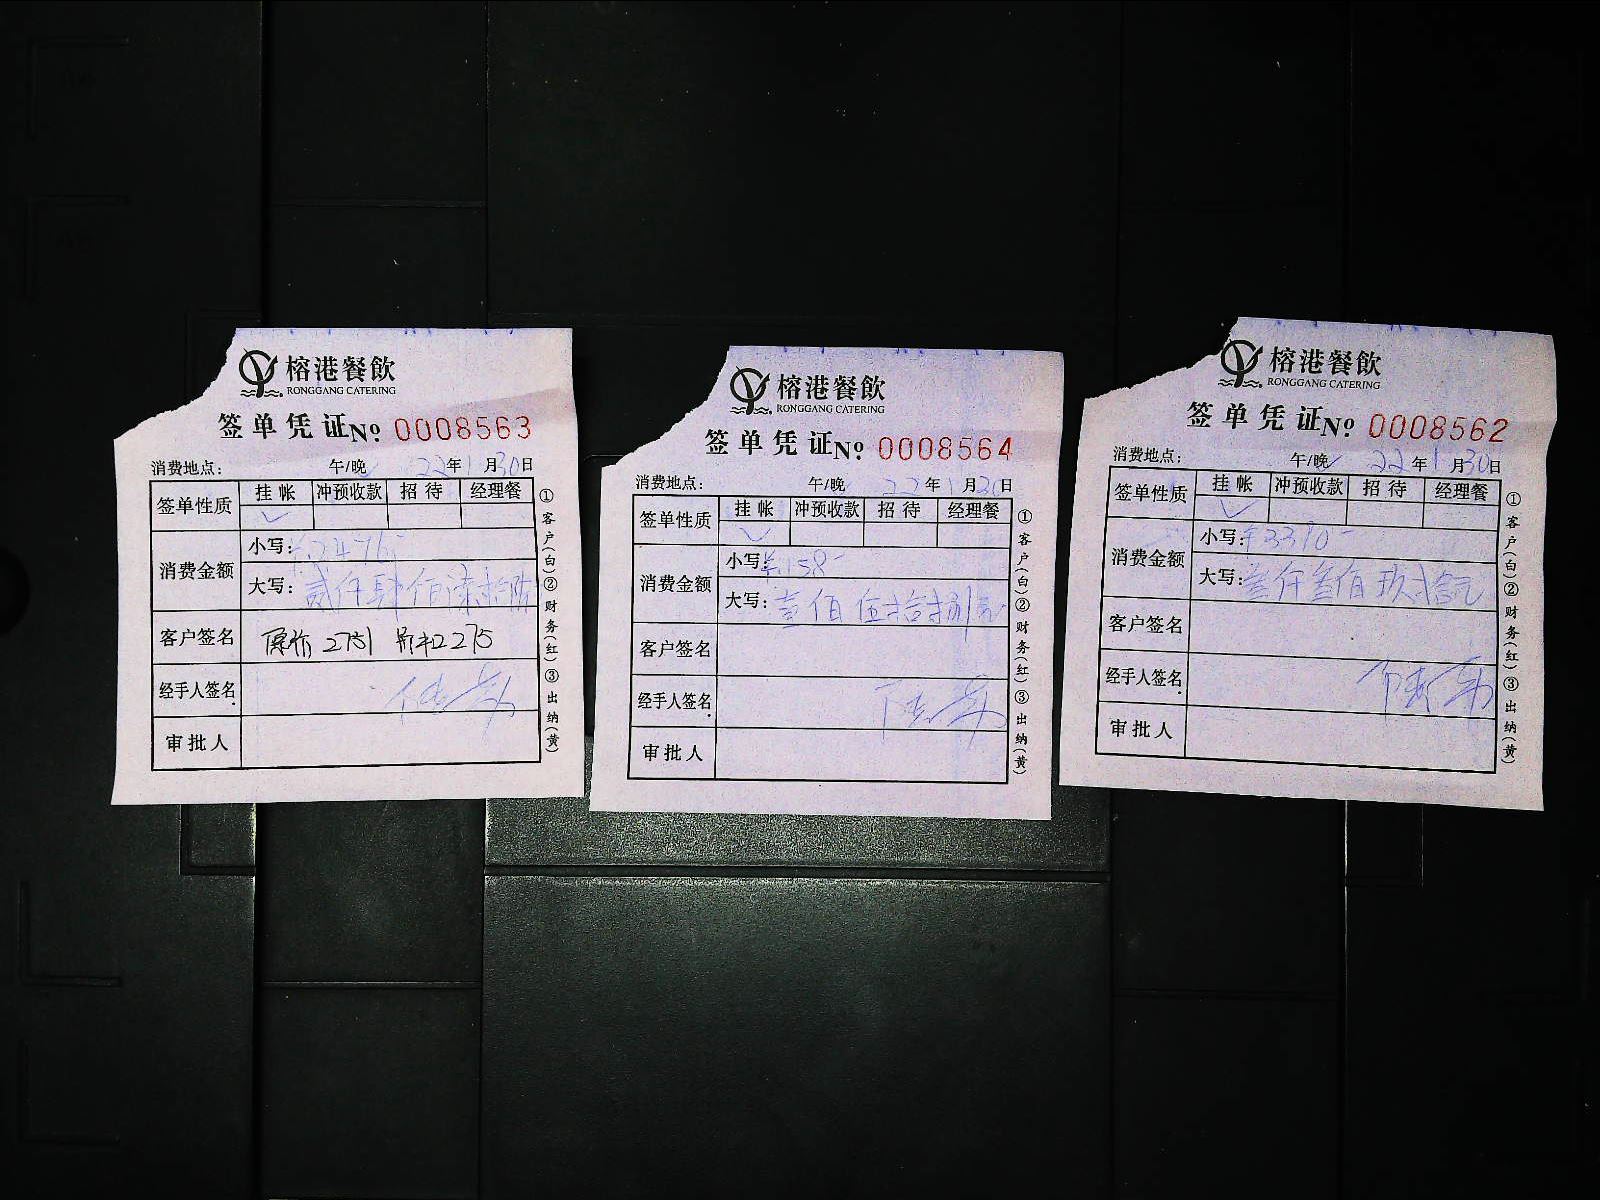 榕港餐飲
RONGGANG CATERING
签单凭证 No 0008563
消费地点: 午/晚 22年1月30日
签单性质 挂帐 冲预收款 招待 经理餐
✓
消费金额
小写:¥2476
大写:贰仟肆佰柒拾陆
客户签名 原价2751 折扣275
经手人签名
审批人
①客户(白)②财务(红)③出纳(黄)
榕港餐飲
RONGGANG CATERING
签单凭证 No 0008564
消费地点: 午/晚 22年1月30日
签单性质 挂帐 冲预收款 招待 经理餐
✓
消费金额
小写:¥158-
大写:壹佰伍拾捌元
客户签名
经手人签名
审批人
①客户(白)②财务(红)③出纳(黄)
榕港餐飲
RONGGANG CATERING
签单凭证 No 0008562
消费地点: 午/晚 22年1月30日
签单性质 挂帐 冲预收款 招待 经理餐
✓
消费金额
小写:¥3390-
大写:叁仟叁佰玖拾元
客户签名
经手人签名
审批人
①客户(白)②财务(红)③出纳(黄)